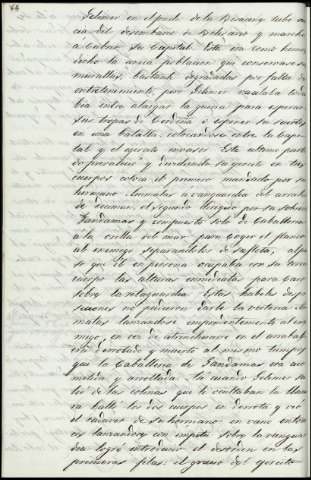 64
Gelimer en el punto de la Byzacena tubo noti
cia del desembarco de Belisario y marchó
á cubrir su Capital. Esta era como hemos
dicho la unica poblacion que conservase sus
murallas, bastante degradadas por falta de
entretenimiento, por Gelimer vacilaba toda
bia entre alargar la guerra para esperar
sus tropas de Cerdeña ó esperar su suerte
en una batalla, colocandose entre la Capi
tal y el egercito invasor. Este ultimo partido
prefirió y dividiendo su egercito en tres
cuerpos coloca el primero mandado por su
hermano Ammatas á vanguardia del arrabal
de Decimun, el segundo dirigido por su sobrino
Gandamar y compuesto solo de Caballeria
á la orilla del mar para coger el flanco
al enemigo separandolo de su flota, al pa
so que él en persona ocupaba con su tercer
cuerpo las alturas inmediatas para caer
sobre la retaguardia. Estas habiles dispo
siciones no pudieron darle la victoria. Am
matas lanzandose imprudentemente al ene
migo, en vez de atrincherarse en el arrabal
esta derrotado y muerto al mismo tiempo
que la Caballeria de Gandamar era aco
metida y arrollada. Cuando Gelimer sa
lió de las colinas que le ocultaban la llanu
ra halló los dos cuerpos en derrota y vió
el cadaver de su hermano en vano enton
ces lanzandose con impetu sobre la vanguar
dia logró introducir el desorden en las
primeras filas: el grueso del egercito